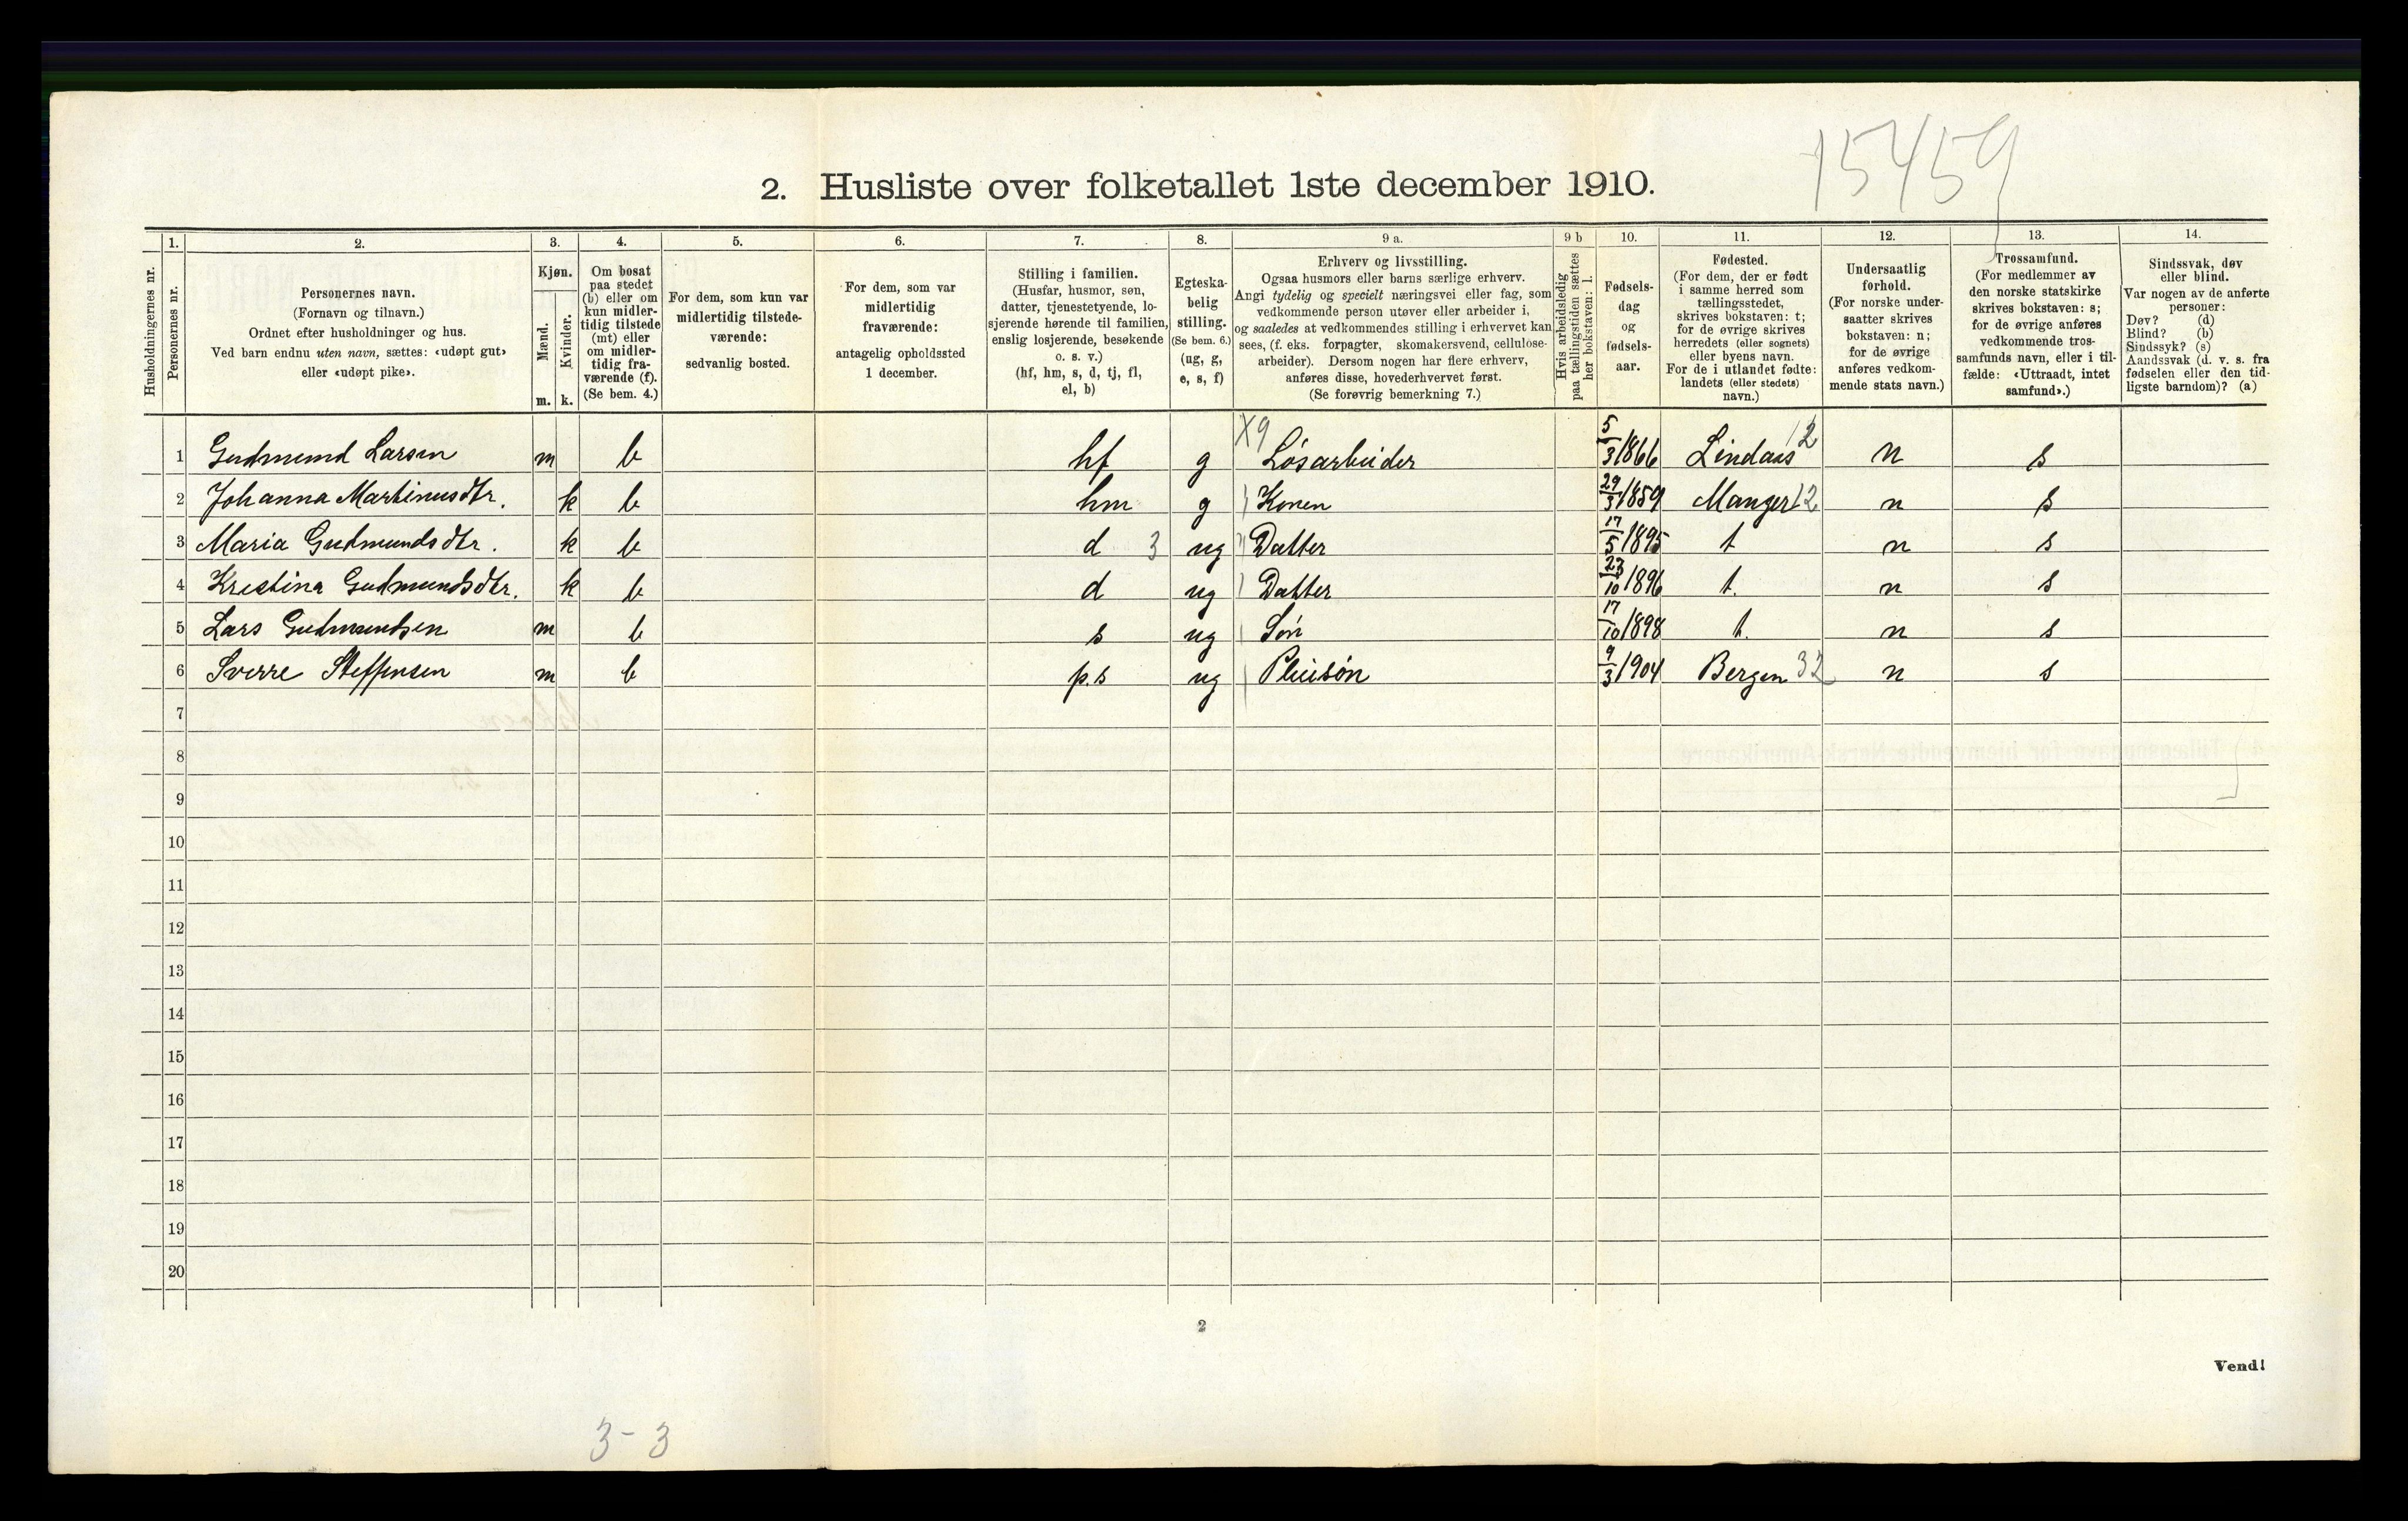 15459
2. Husliste over folketallet 1ste december 1910.
Husholdningernes nr.
1. Personernes nr.
2. Personernes navn.
(Fornavn og tilnavn.)
Ordnet efter husholdninger og hus.
Ved barn endnu uten navn, sættes: «udøpt gut»
eller «udøpt pike».
3. Kjøn.
Mænd. m.
Kvinder. k.
4. Om bosat
paa stedet
(b) eller om
kun midler-
tidig tilstede
(mt) eller
om midler-
tidig fra-
værende (f).
(Se bem. 4.)
5. For dem, som kun var
midlertidig tilstede-
værende:
sedvanlig bosted.
6. For dem, som var
midlertidig
fraværende:
antagelig opholdssted
1 december.
7. Stilling i familien.
(Husfar, husmor, søn,
datter, tjenestetyende, lo-
sjerende hørende til familien,
enslig losjerende, besøkende
o. s. v.)
(hf, hm, s, d, tj, fl,
el, b)
8. Egteska-
belig
stilling.
(Se bem. 6.)
(ug, g,
e, s, f)
9 a. Erhverv og livsstilling.
Ogsaa husmors eller barns særlige erhverv.
Angi tydelig og specielt næringsvei eller fag, som
vedkommende person utøver eller arbeider i,
og saaledes at vedkommendes stilling i erhvervet kan
sees, (f. eks. forpagter, skomakersvend, cellulose-
arbeider). Dersom nogen har flere erhverv,
anføres disse, hovederhvervet først.
(Se forøvrig bemerkning 7.)
9 b Hvis arbeidsledig
paa tællingstiden sættes
her bokstaven: l.
10. Fødsels-
dag
og
fødsels-
aar.
11. Fødested.
(For dem, der er født
i samme herred som
tællingsstedet,
skrives bokstaven: t;
for de øvrige skrives
herredets (eller sognets)
eller byens navn.
For de i utlandet fødte:
landets (eller stedets)
navn.)
12. Undersaatlig
forhold.
(For norske under-
saatter skrives
bokstaven: n;
for de øvrige
anføres vedkom-
mende stats navn.)
13. Trossamfund.
(For medlemmer av
den norske statskirke
skrives bokstaven: s;
for de øvrige anføres
vedkommende tros-
samfunds navn, eller i til-
fælde: «Uttraadt, intet
samfund».)
14. Sindssvak, døv
eller blind.
Var nogen av de anførte
personer:
Døv? (d)
Blind? (b)
Sindssyk? (s)
Aandssvak (d. v. s. fra
fødselen eller den tid-
ligste barndom)? (a)
1 Gudmund Larsen m b hf g X9 Løsarbeider 5/3 1866 Lindaas 12 n s
2 Johanna Martinusdtr. k b hm g Konen 29/3 1859 Manger 12 n s
3 Maria Gudmundsdtr. k b d 3 ug Datter 17/5 1895 t n s
4 Kristina Gudmundsdtr. k b d ug Datter 23/10 1896 t. n s
5 Lars Gudmundsen m b s ug Søn 17/10 1898 t. n s
6 Sverre Steffensen m b p.s ug Pleiesøn 9/3 1904 Bergen 32 n s
7
8
9
10
11
12
13
14
15
16
17
18
19
20
2
Vend!
3-3